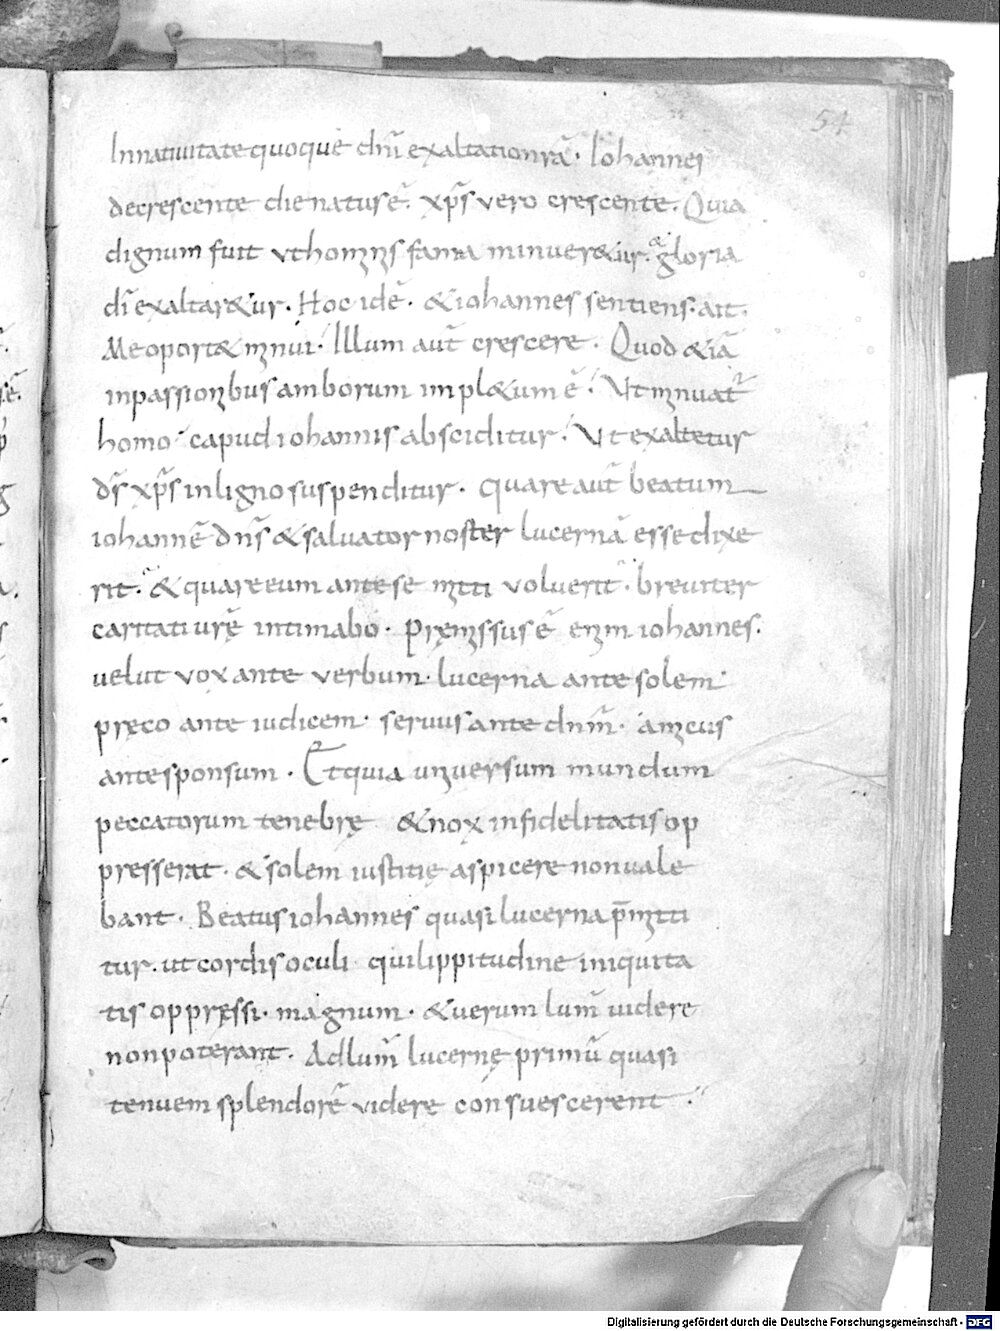 54
Innatiuitate quoque dn̄i exaltation̄ra. Iohannes
decrescente die natus ē. xp̄s vero crescente. Quia
dignum fuit vt hominis fama minuer&ur. & gloria
dī exaltar&ur. Hoc idē. & iohannes sentiens. ait.
Me oport& minui. Illum aut̄ crescere. Quod & iā
inpassionibus amborum impl&um ē. Vt minuat̄
homo capud iohannis absciditur. Vt exaltetur
dn̄s xp̄s in ligno suspenditur. Quare aut̄ beatum
iohannē dn̄s & saluator noster lucernā esse dixe
rit. & quare eum ante se mitti voluerit. breuiter
caritati urę̄ intimabo. Pręmissus ē enim iohannes.
uelut vox ante verbum. lucerna ante solem
pręco ante iudicem. seruus ante dn̄m. amicus
ante sponsum. Et quia uniuersum mundum
peccatorum tenebrę & nox infidelitatis op
presserat. & solem iustitię aspicere non uale
bant. Beatus iohannes quasi lucerna p̄mitti
tur. ut cordis oculi qui lippitudine iniquita
tis oppręssi. magnum. & uerum lum̄ uidere
non poterant. Ad lum̄ lucernę primū quasi
tenuem splendorē videre consuescerent.
Digitalisierung gefördert durch die Deutsche Forschungsgemeinschaft - DFG